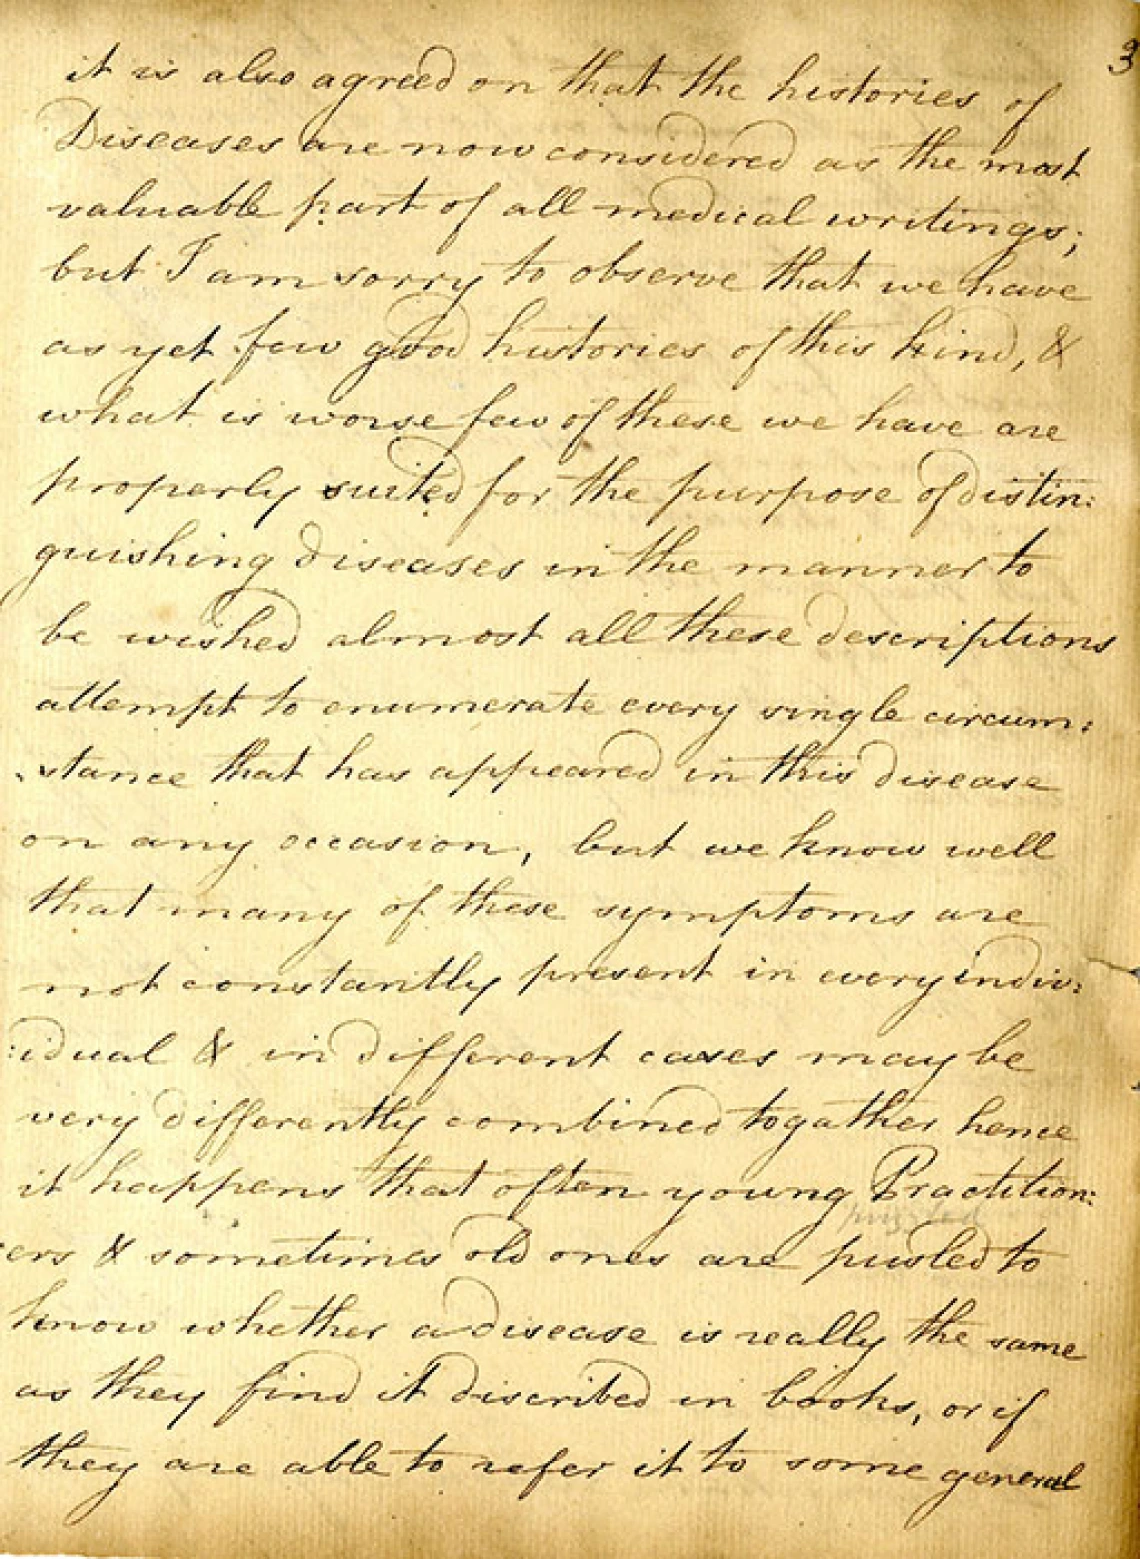 3
it is also agreed on that the histories of
Diseases are now considered as the most
valuable part of all medical writings;
but I am sorry to observe that we have
as yet few good histories of this kind, &
what is worse few of these we have are
properly suited for the purpose of distin:
guishing diseases in the manner to
be wished almost all these descriptions
attempt to enumerate every single circum:
:stance that has appeared in this disease
on any occasion, but we know well
that many of these symptoms are
not constantly present in every indiv:
:idual & in different cases may be
very differently combined togather hence
it happens that often young Practition:
puzzled
:ers & sometimes old ones are pusled to
know whether a disease is really the same
as they find it discribed in books, or if
they are able to refer it to some general